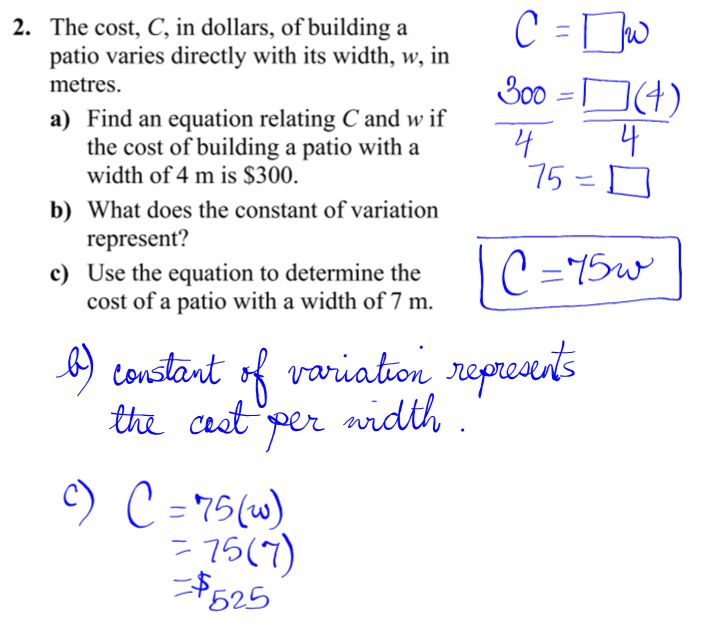 2. The cost, C, in dollars, of building a
patio varies directly with its width, w, in
metres.
a) Find an equation relating C and w if
the cost of building a patio with a
width of 4 m is $300.
b) What does the constant of variation
represent?
c) Use the equation to determine the
cost of a patio with a width of 7 m.
C = □w
300 = □(4)
4 4
75 = □
C = 75w
b) constant of variation represents
the cost per width.
c) C = 75(w)
= 75(7)
= $525